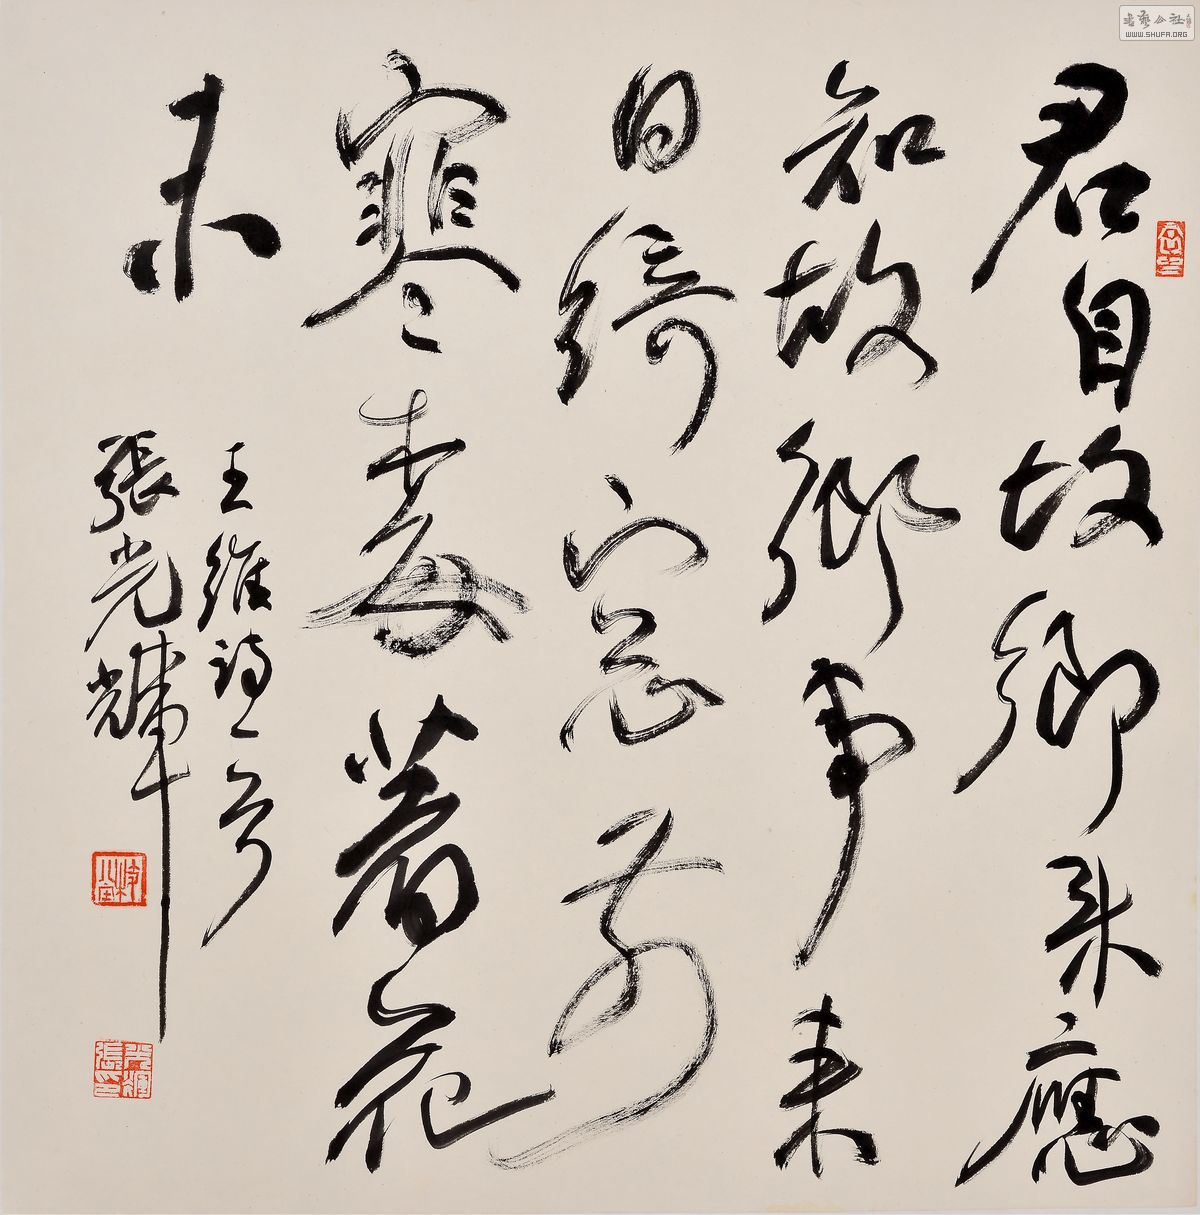 君自故鄉來應
知故鄉事來
日綺窗前
寒梅著花
未
王維詩一首
張光輝
書藝公社
WWW.SHUFA.ORG